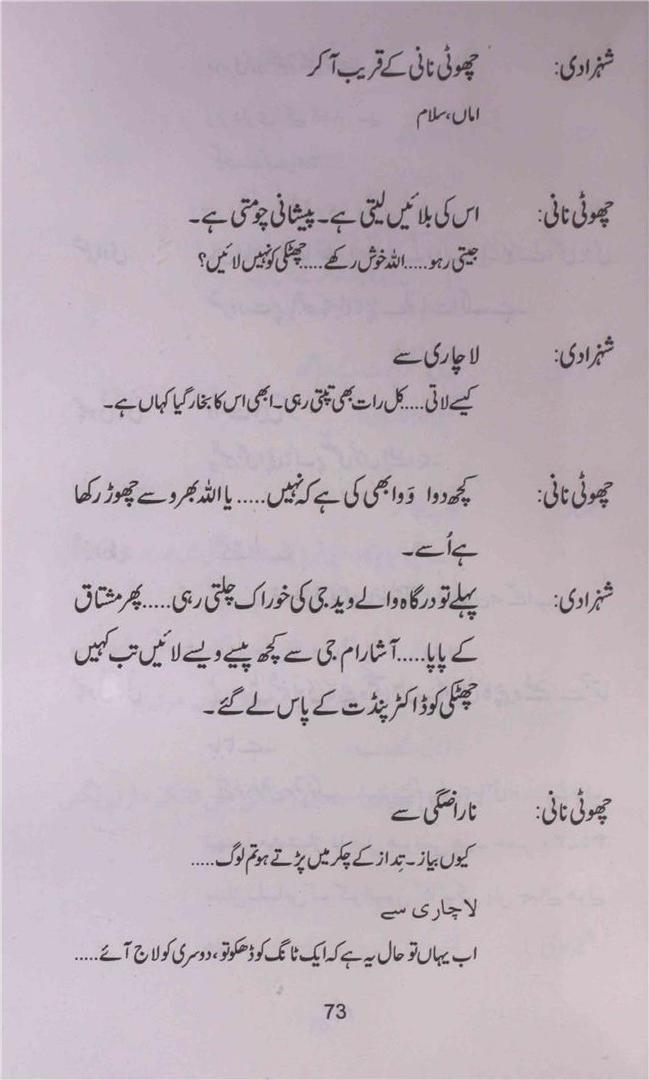 شہزادی: چھوٹی نانی کے قریب آ کر
اماں، سلام
چھوٹی نانی: اس کی بلائیں لیتی ہے۔ پیشانی چومتی ہے۔
جیتی رہو.....اللہ خوش رکھے.....چھٹکی کو نہیں لائیں؟
شہزادی: لاچاری سے
کیسے لاتی.....کل رات بھی تپتی رہی۔ ابھی اس کا بخار گیا کہاں ہے۔
چھوٹی نانی: کچھ دوا وَوا بھی کی ہے کہ نہیں.....یا اللہ بھروسے چھوڑ رکھا
ہے اُسے۔
شہزادی: پہلے تو درگاہ والے ویدجی کی خوراک چلتی رہی.....پھر مشتاق
کے پاپا.....آشارام جی سے کچھ پیسے ویسے لائیں تب کہیں
چھٹکی کو ڈاکٹر پنڈت کے پاس لے گئے۔
چھوٹی نانی: ناراضگی سے
کیوں بیاز۔تِداز کے چکر میں پڑتے ہو تم لوگ.....
لاچاری سے
اب یہاں تو حال یہ ہے کہ ایک ٹانگ کو ڈھکو تو، دوسری کو لاج آئے.....
73